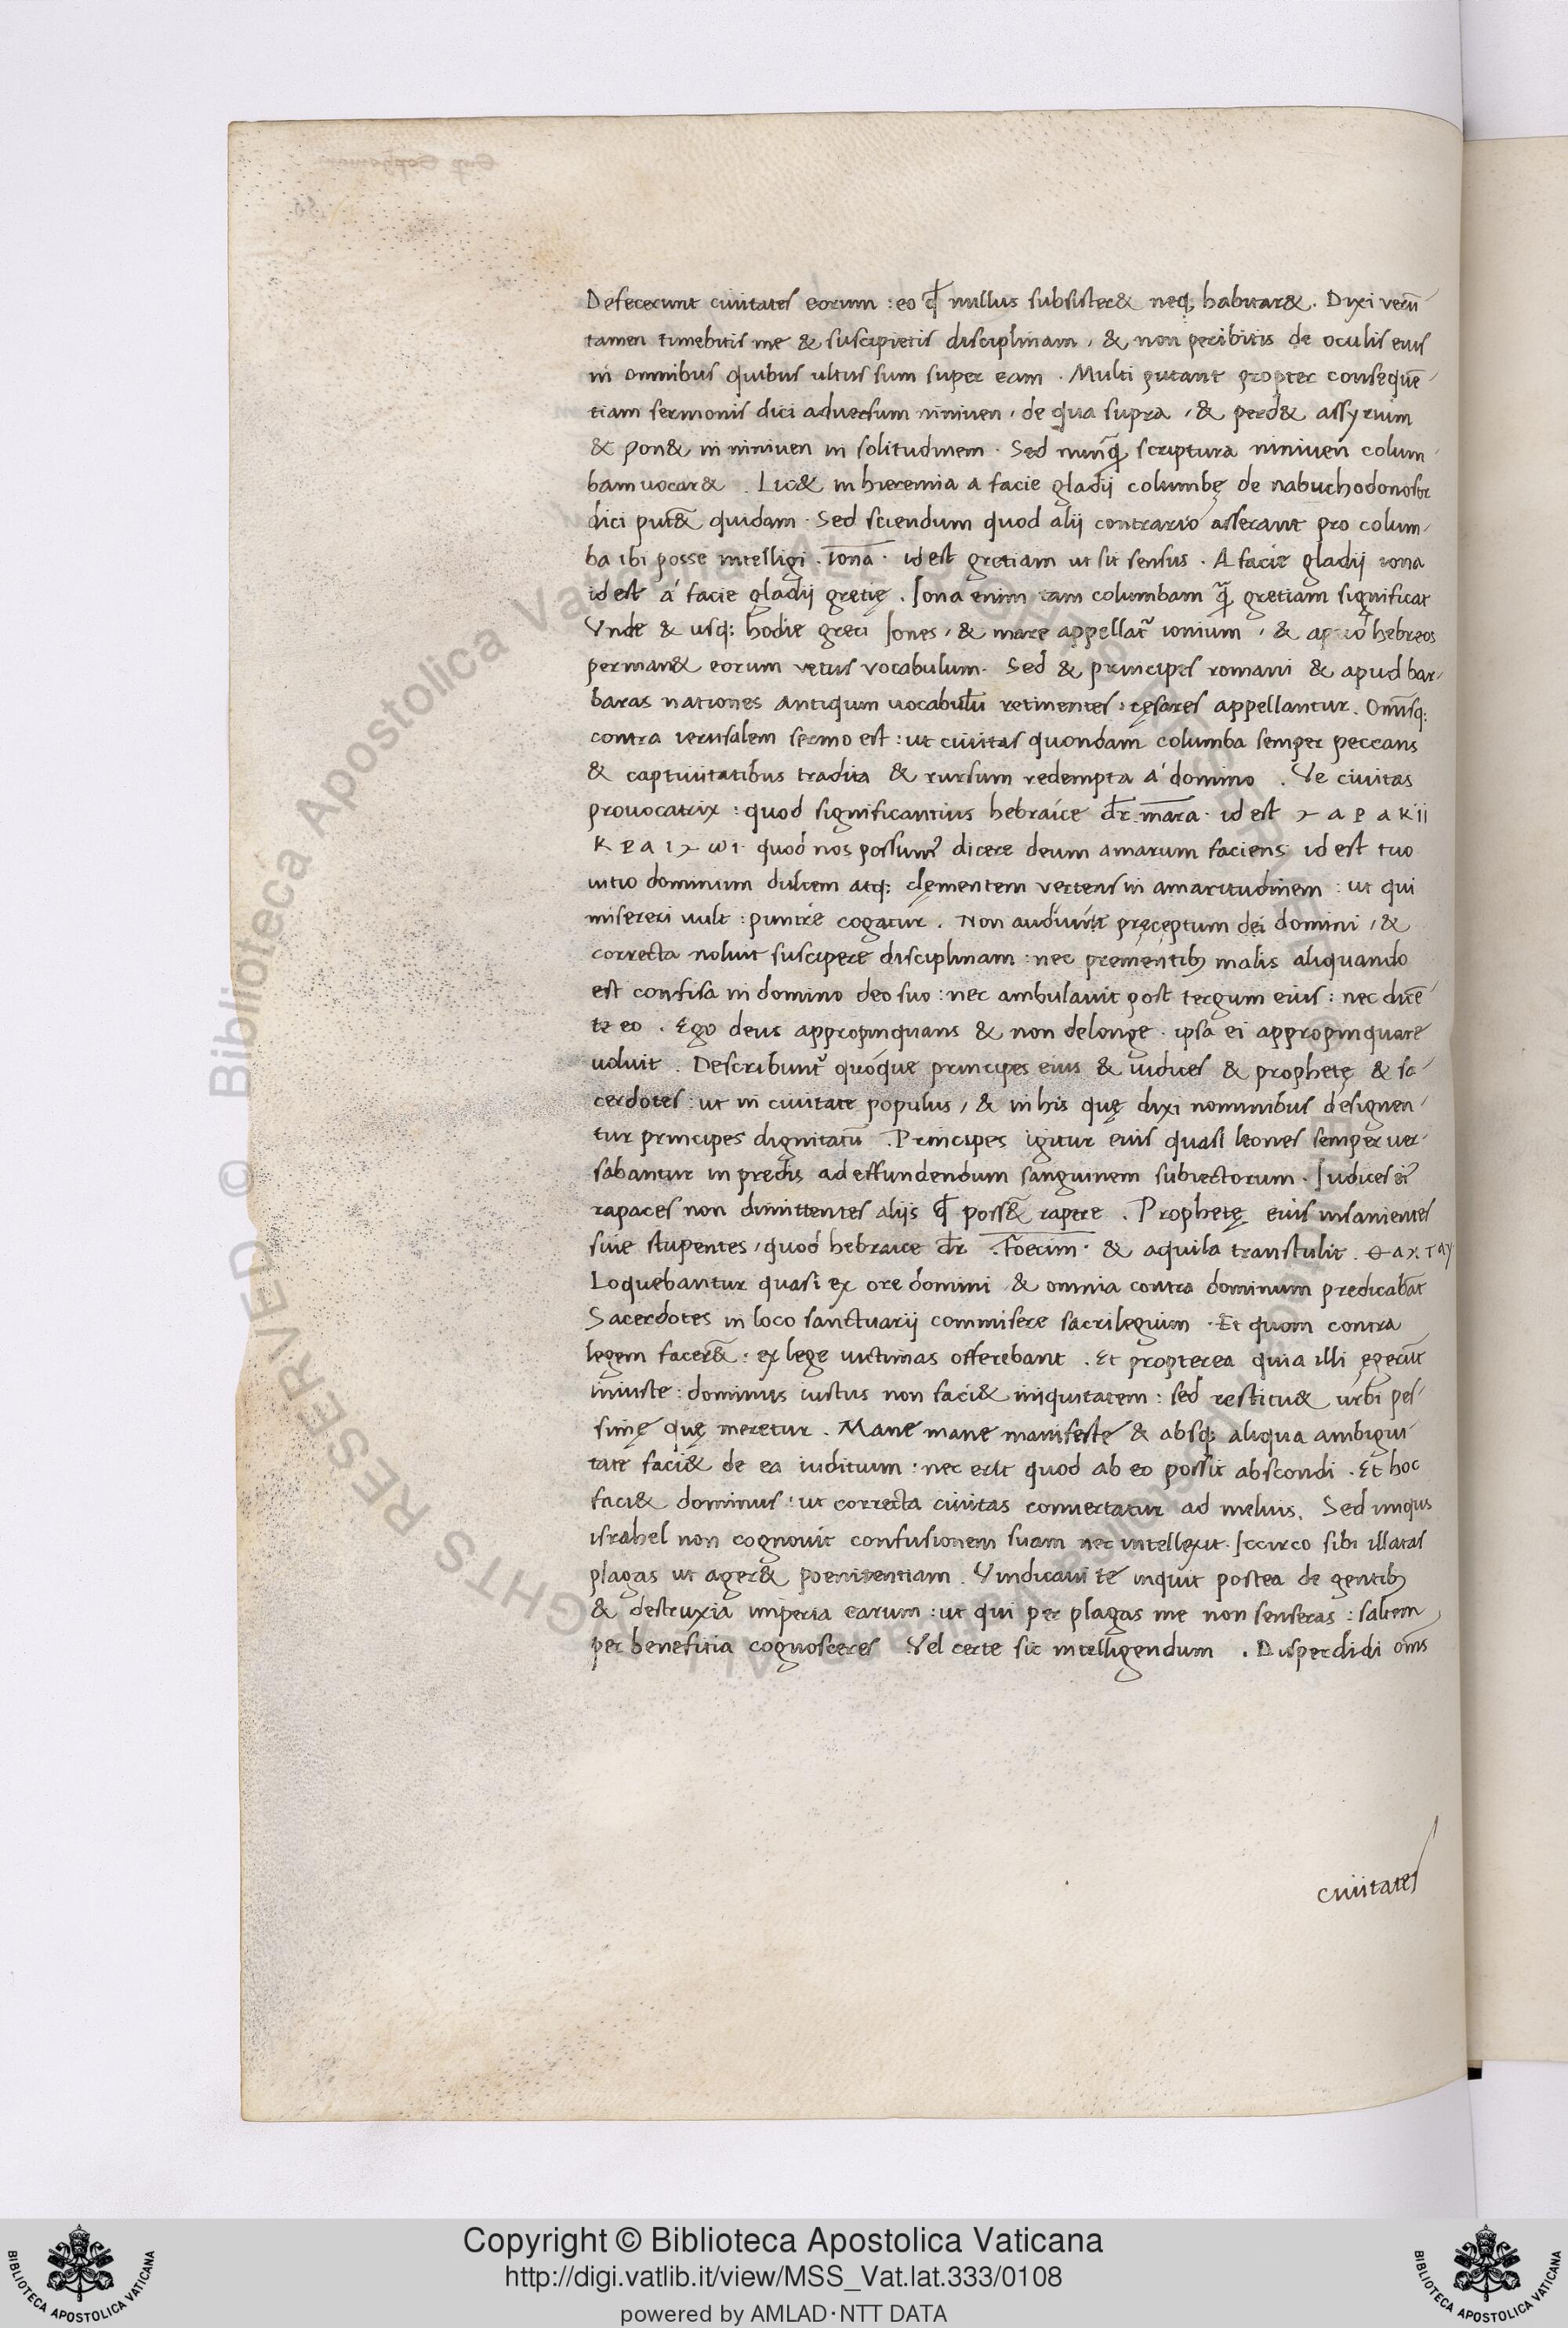 Defecerunt ciuitates eorum : eo qđ nullus subsister& neq; habitar&. Dixi verū
tamen timebitis me & suscipietis disciplinam, & non peribitis de oculis eius
in omnibus quibus ultus sum super eam. Multi putant propter consequē
tiam sermonis dici aduersum niniuen, de qua supra, & perd& assyrium
& pon& in niniuen in solitudinem. Sed nunq̃ scriptura niniuen colum
bam uocar&. Lic& in hieremia a facie gladij columbę de nabuchodonosor
dici put&̄ quidam. Sed sciendum quod alij contrario asserant pro colum
ba ibi posse intelligi. Iona. id est gretiam ut sit sensus. A facie gladij iona
id est á facie gladij gretię. Iona enim tam columbam q̃ gretiam significat
Vnde & usq; hodie greci Iones, & mare appellat̃ ionium, & apud hebreos
perman& eorum vetus vocabulum. Sed & principes romani & apud bar-
baras nationes antiqum uocabulū retinentes : cęsares appellantur. Omīsq;
contra ierusalem sermo est : ut ciuitas quondam columba semper peccans
& captiuitatibus tradita & rursum redempta á domino. Ve ciuitas
prouocatrix : quod significantius hebraice dr̄. mara. id est χ a ρ a κ ιι
κ ρ a ι χ ω ι. quod nos possum' dicere deum amarum faciens id est tuo
uitio dominum dulcem atq; clęmentem vertens in amaritudinem : ut qui
misereri uult : punire cogatur. Non audiuit pręceptum dei domini, &
correcta noluit suscipere disciplinam : nec prementib; malis aliquando
est confisa in domino deo suo : nec ambulauit post tergum eius : nec dicē
te eo. Ego deus appropinquans & non delonge. ipsa ei appropinquare
uoluit. Describunt̃ quóque principes eius & iudices & prophetę & sa
cerdotes : ut in ciuitate populus, & in his quę dixi nominibus designen
tur principes dignitatū. Principes igitur eius quasi leones semper uer
sabantur in predis ad effundendum sanguinem subiectorum. Iudices ei'
rapaces non dimittentes alijs qđ poss&̄ rapere. Prophetę eius insanientes
siue stupentes, quod hebraice dr̄. foecim. & aquila transtulit. θ a χ τ aγ
Loquebantur quasi ex ore domini & omnia contra dominum predicabāt
Sacerdotes in loco sanctuarij commisere sacrilegium. Et quom contra
legem facer&̄ : ex lege uictimas offerebant. Et propterea quia illi ęgerūt
iniuste : dominus iustus non faci& iniquitatem : sed restitu& urbi pes
simę quę meretur. Mane mane manifeste & absq; aliqua ambigui
tate faci& de ea iuditium : nec erit quod ab eo possit abscondi. Et hoc
faci& dominus : ut correcta ciuitas conuertatur ad melius. Sed iniqus
israhel non cognouit confusionem suam nec intellexit. Iccirco sibi illatas
plagas ut ager& poenitentiam. Vindicaui te inquit postea de gentib;
& destruxia imperia earum : ut qui per plagas me non senseras : saltem
per benefitia cognosceres Vel certe sic intelligendum. Disperdidi om̄s
ciuitates
© Biblioteca Apostolica Vaticana ALL RIGHTS RESERVED
Copyright © Biblioteca Apostolica Vaticana
http://digi.vatlib.it/view/MSS_Vat.lat.333/0108
powered by AMLAD·NTT DATA
BIBLIOTECA APOSTOLICA VATICANA
BIBLIOTECA APOSTOLICA VATICANA